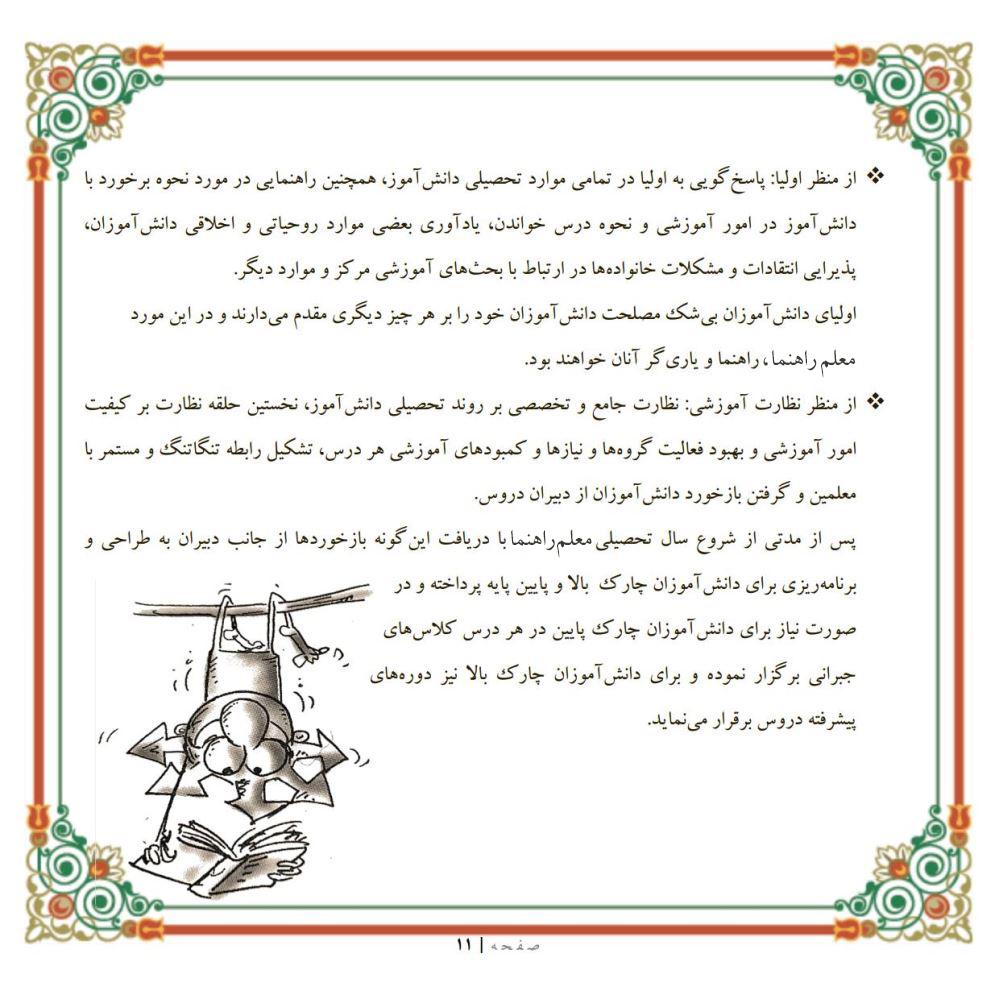 ❖ از منظر اولیا: پاسخ‌گویی به اولیا در تمامی موارد تحصیلی دانش‌آموز، همچنین راهنمایی در مورد نحوه برخورد با
دانش‌آموز در امور آموزشی و نحوه درس خواندن، یادآوری بعضی موارد روحیاتی و اخلاقی دانش‌آموزان،
پذیرایی انتقادات و مشکلات خانواده‌ها در ارتباط با بحث‌های آموزشی مرکز و موارد دیگر.
اولیای دانش‌آموزان بی‌شک مصلحت دانش‌آموزان خود را بر هر چیز دیگری مقدم می‌دارند و در این مورد
معلم راهنما، راهنما و یاری‌گر آنان خواهند بود.
❖ از منظر نظارت آموزشی: نظارت جامع و تخصصی بر روند تحصیلی دانش‌آموز، نخستین حلقه نظارت بر کیفیت
امور آموزشی و بهبود فعالیت گروه‌ها و نیازها و کمبودهای آموزشی هر درس، تشکیل رابطه تنگاتنگ و مستمر با
معلمین و گرفتن بازخورد دانش‌آموزان از دبیران دروس.
پس از مدتی از شروع سال تحصیلی معلم راهنما با دریافت این‌گونه بازخوردها از جانب دبیران به طراحی و
برنامه‌ریزی برای دانش‌آموزان چارک بالا و پایین پایه پرداخته و در
صورت نیاز برای دانش‌آموزان چارک پایین در هر درس کلاس‌های
جبرانی برگزار نموده و برای دانش‌آموزان چارک بالا نیز دوره‌های
پیشرفته دروس برقرار می‌نماید.
صفحه | ۱۱